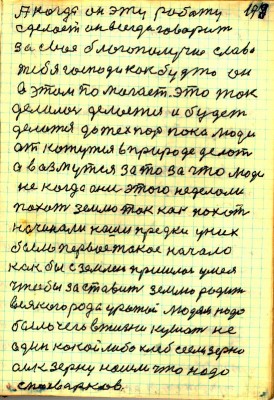 193
А когда он эту работу
сделает он всегда говорит
за свое благополучие слава
тебя господи как будто он
в этом помогает. это так
делалось делается и будет
делатся до тех пор пока люди
от кажутся в природе делать
а возмутся за то за что люди
не когда они этого неделали
пахат землю так как пахат
начинали наши предки у них
было первое такое начало
как бы с земли пришлос умея
чтобы заставит землю родит
всякого рода урожай людям надо
было чего в жизни кушат не
один какой либо хлеб сеем зерно
али к зерну наши что надо